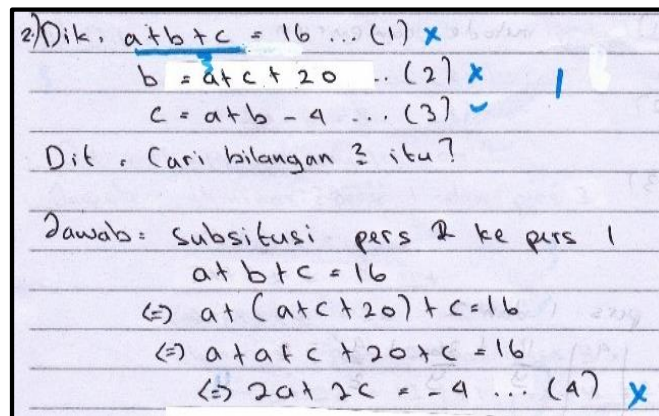 2.) Dik : a+b+c = 16 ... (1) x
3
b = a+c + 20 .. (2) x 1
c = a+b - 4 ... (3) ✓
Dit : Cari bilangan 3 itu?
Jawab = Subsitusi pers 2 ke pers 1
a+b+c = 16
(=) a+(a+c+20)+c=16
(=) a+a+c+20+c = 16
(=) 2a+2c = -4 ... (4) x